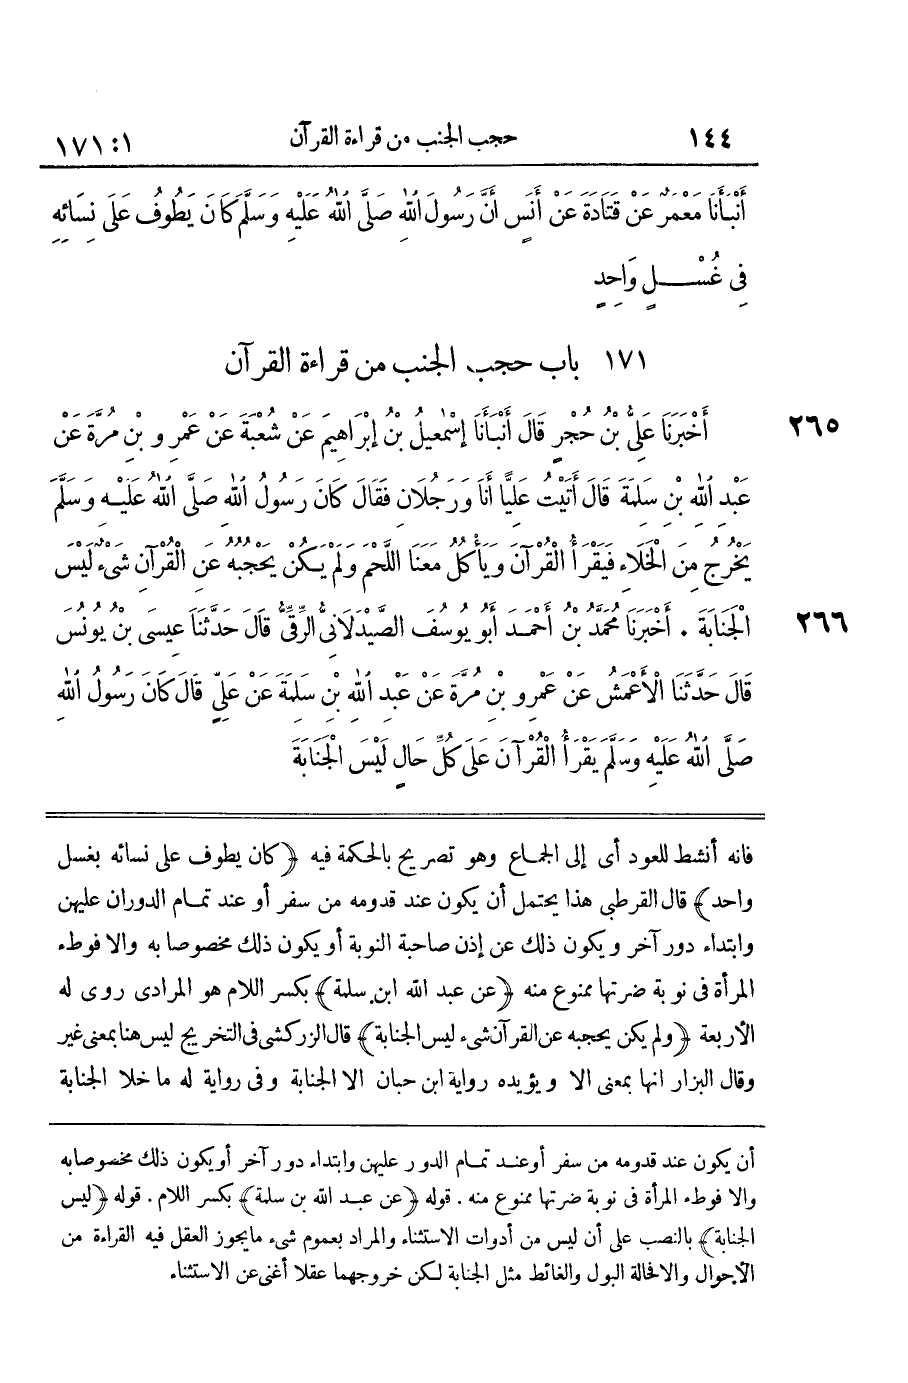 ١٤٤ حجب الجنب من قراءة القرآن ١٧١:١
أَنْبَأَنَا مَعْمَرٌ عَنْ قَتَادَةَ عَنْ أَنَسٍ أَنَّ رَسُولَ اللهِ صَلَّى اللهُ عَلَيْهِ وَسَلَّمَ كَانَ يَطُوفُ عَلَى نِسَائِهِ
فِى غُسْلٍ وَاحِدٍ
١٧١ باب حجب الجنب من قراءة القرآن
٢٦٥ أَخْبَرَنَا عَلِىُّ بْنُ حُجْرٍ قَالَ أَنْبَأَنَا إِسْمٰعِيلُ بْنُ إِبْرَاهِيمَ عَنْ شُعْبَةَ عَنْ عَمْرِو بْنِ مُرَّةَ عَنْ
عَبْدِ اللهِ بْنِ سَلِمَةَ قَالَ أَتَيْتُ عَلِيًّا أَنَا وَرَجُلَانِ فَقَالَ كَانَ رَسُولُ اللهِ صَلَّى اللهُ عَلَيْهِ وَسَلَّمَ
يَخْرُجُ مِنَ الْخَلَاءِ فَيَقْرَأُ الْقُرْآنَ وَيَأْكُلُ مَعَنَا اللَّحْمَ وَلَمْ يَكُنْ يَحْجُبُهُ عَنِ الْقُرْآنِ شَىْءٌ لَيْسَ
٢٦٦ الْجَنَابَةَ . أَخْبَرَنَا مُحَمَّدُ بْنُ أَحْمَدَ أَبُو يُوسُفَ الصَّيْدَلَانِىُّ الرَّقِّىُّ قَالَ حَدَّثَنَا عِيسَى بْنُ يُونُسَ
قَالَ حَدَّثَنَا الْأَعْمَشُ عَنْ عَمْرِو بْنِ مُرَّةَ عَنْ عَبْدِ اللهِ بْنِ سَلِمَةَ عَنْ عَلِىٍّ قَالَ كَانَ رَسُولُ اللهِ
صَلَّى اللهُ عَلَيْهِ وَسَلَّمَ يَقْرَأُ الْقُرْآنَ عَلَى كُلِّ حَالٍ لَيْسَ الْجَنَابَةَ
فانه أنشط للعود أى إلى الجماع وهو تصريح بالحكمة فيه ﴿كان يطوف على نسائه بغسل
واحد﴾ قال القرطبى هذا يحتمل أن يكون عند قدومه من سفر أو عند تمام الدوران عليهن
وابتداء دور آخر ويكون ذلك عن إذن صاحبة النوبة أو يكون ذلك مخصوصا به والا فوطء
المرأة فى نوبة ضرتها ممنوع منه ﴿عن عبد الله ابن سلمة﴾ بكسر اللام هو المرادى روى له
الأربعة ﴿ولم يكن يحجبه عن القرآن شىء ليس الجنابة﴾ قال الزركشى فى التخريج ليس هنا بمعنى غير
وقال البزار انها بمعنى الا ويؤيده رواية ابن حبان الا الجنابة وفى رواية له ما خلا الجنابة
أن يكون عند قدومه من سفر أو عند تمام الدور عليهن وابتداء دور آخر أو يكون ذلك مخصوصا به
والا فوطء المرأة فى نوبة ضرتها ممنوع منه . قوله ﴿عن عبد الله بن سلمة﴾ بكسر اللام . قوله ﴿ليس
الجنابة﴾ بالنصب على أن ليس من أدوات الاستثناء والمراد بعموم شىء مايجوز العقل فيه القراءة من
الأحوال والا فحالة البول والغائط مثل الجنابة لكن خروجهما عقلا أغنى عن الاستثناء